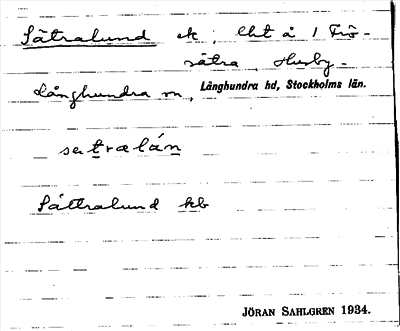 Sätralund ek, lht å 1 Frö-
sätra, Husby-
Långhundra sn, Långhundra hd, Stockholms län.
sætrælán
Sättralund kb
JÖRAN SAHLGREN 1934.